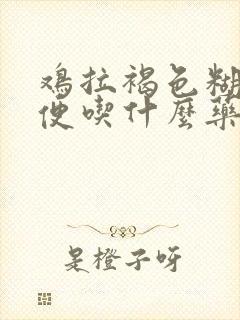 鸡拉褐色糊
便喫什麼藥
是橙子呀